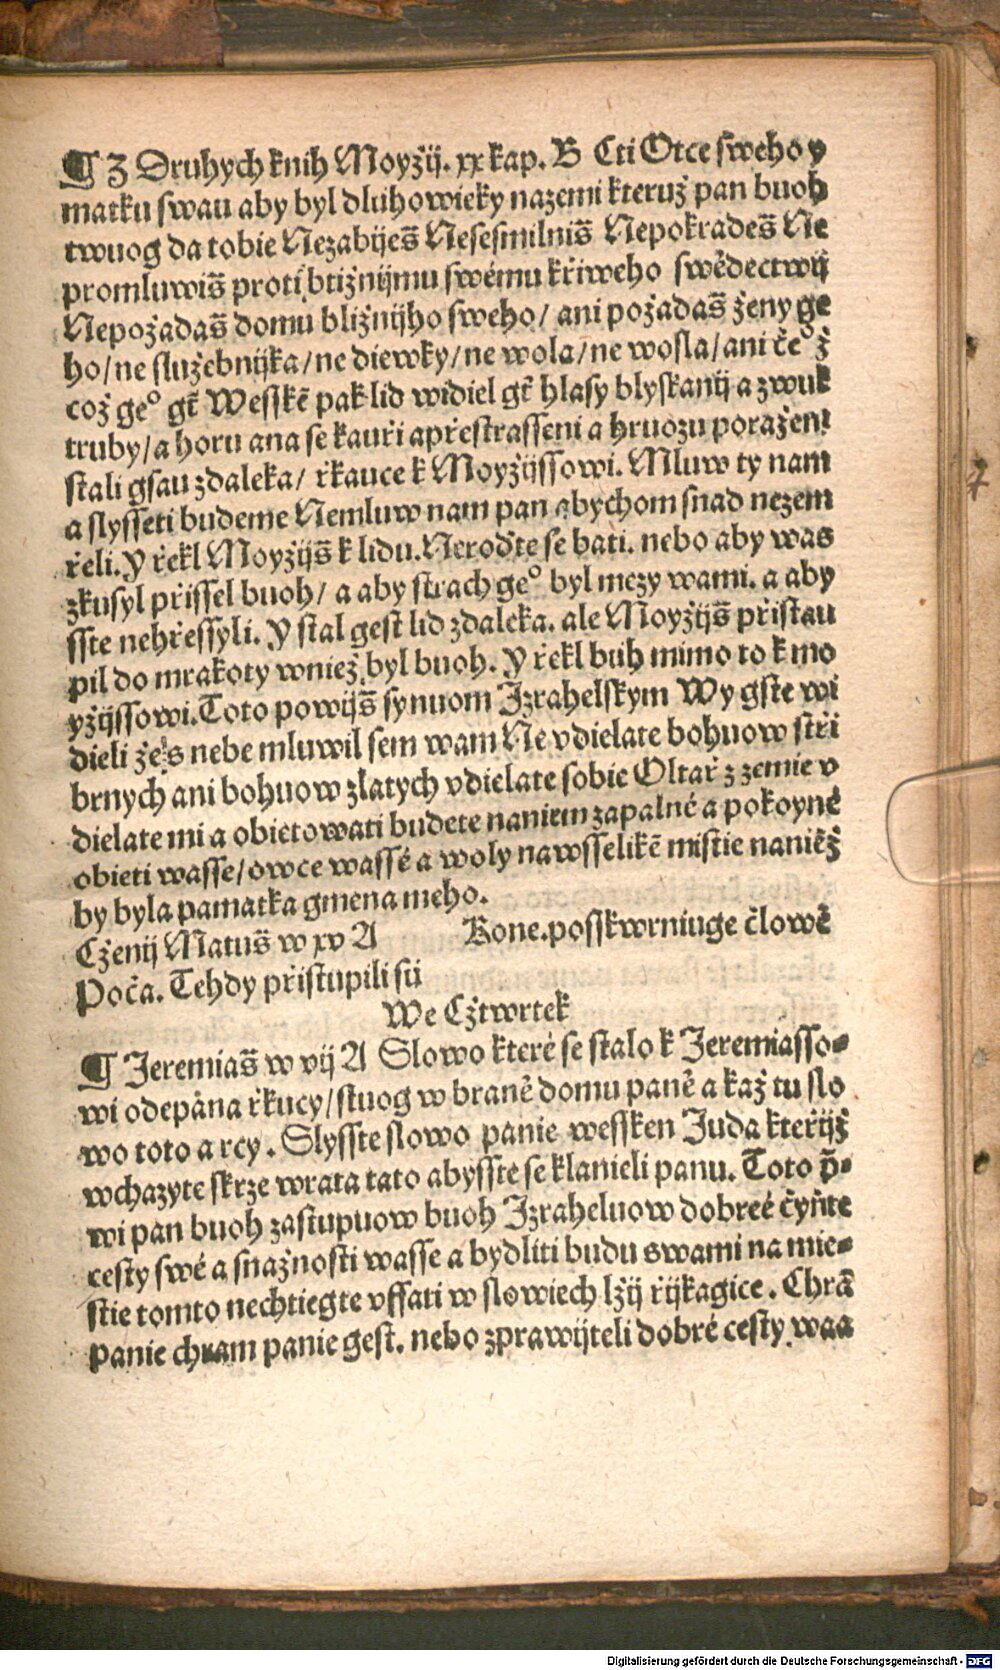 ¶ Z Druhych knih Moyžij. xx kap. B Cti Otce sweho y
matku swau aby byl dluhowieky nazemi kteruž pan buoh
twuog da tobie Nezabijes̃ Nesesmilnis̃ Nepokrades̃ Ne
promluwis̃ proti bližnijmu swému křiweho swědectwij
Nepožadas̃ domu bližnijho sweho/ ani požadas̃ ženy ge
ho/ne služebnijka/ne diewky/ne wola/ne wosla/ani čeº ž
což geº gt̃ Wesskẽ pak lid widiel gt̃ hlasy blyskanij a zwuk
truby/a horu ana se kauři apřestrasseni a hruozu poraženi
stali gsau zdaleka/ řkauce k Moyžijssowi. Mluw ty nam
a slysseti budeme Nemluw nam pan abychom snad nezem
řeli. Y řekl Moyžijs̃ k lidu. Neroďte se bati. nebo aby was
zkusyl přissel buoh/ a aby strach geº byl mezy wami. a aby
sste nehřessyli. Y stal gest lid zdaleka. ale Moyžijs̃ přistau
pil do mrakoty wniež byl buoh. Y řekl buh mimo to k mo
yžijssowi. Toto powijs̃ synuom Izrahelskym Wy gste wi
dieli že s nebe mluwil sem wam Ne vdielate bohuow stři
brnych ani bohuow zlatych vdielate sobie Oltař z zemie v
dielate mi a obietowati budete naniem zapalné a pokoyné
obieti wasse/owce wassé a woly nawsselikẽ mistie naniẽž
by byla pamatka gmena meho.
Cženij Matus̃ w xv A Kone.posskwrniuge člowẽ
Poča. Tehdy přistupili sú
We Cžtwrtek
¶ Jeremias̃ w vij A Slowo které se stalo k Jeremiasso-
wi odepána řkucy/stuog w braně domu paně a kaž tu slo
wo toto a rcy. Slysste slowo panie wessken Juda kteřijž
wchazyte skrze wrata tato abysste se klanieli panu. Toto p̃-
wi pan buoh zastupuow buoh Izraheluow dobreé čyňte
cesty swé a snažnosti wasse a bydliti budu swami na mie-
stie tomto nechtiegte vffati w slowiech lžij řijkagice. Chrã
panie chram panie gest. nebo zprawijteli dobré cesty waa
Digitalisierung gefördert durch die Deutsche Forschungsgemeinschaft - DFG